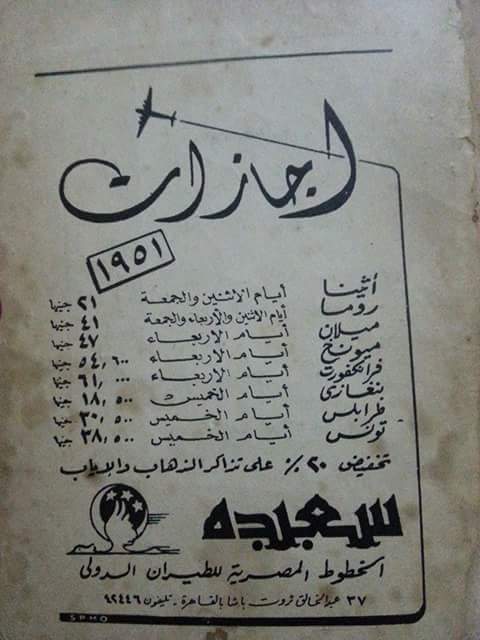 اجازات
١٩٥١
أثينا أيام الاثنين والجمعة ٢١ جنيها
روما أيام الاثنين والأربعاء والجمعة ٤١ جنيها
ميلان أيام الأربعاء ٤٧ جنيها
ميونخ أيام الأربعاء ٥٤,٦٠٠ جنيها
فرانكفورت أيام الأربعاء ٦١,٠٠٠ جنيها
بنغازى أيام الخميس ١٨,٥٠٠ جنيها
طرابلس أيام الخميس ٣٠,٥٠٠ جنيها
تونس أيام الخميس ٣٨,٥٠٠ جنيها
تخفيض ٢٠٪ على تذاكر الذهاب والإياب
سعيده
الخطوط المصرية للطيران الدولى
٣٧ عبد الخالق ثروت باشا بالقاهرة - تليفون ٩٢٤٤٦
SPHO